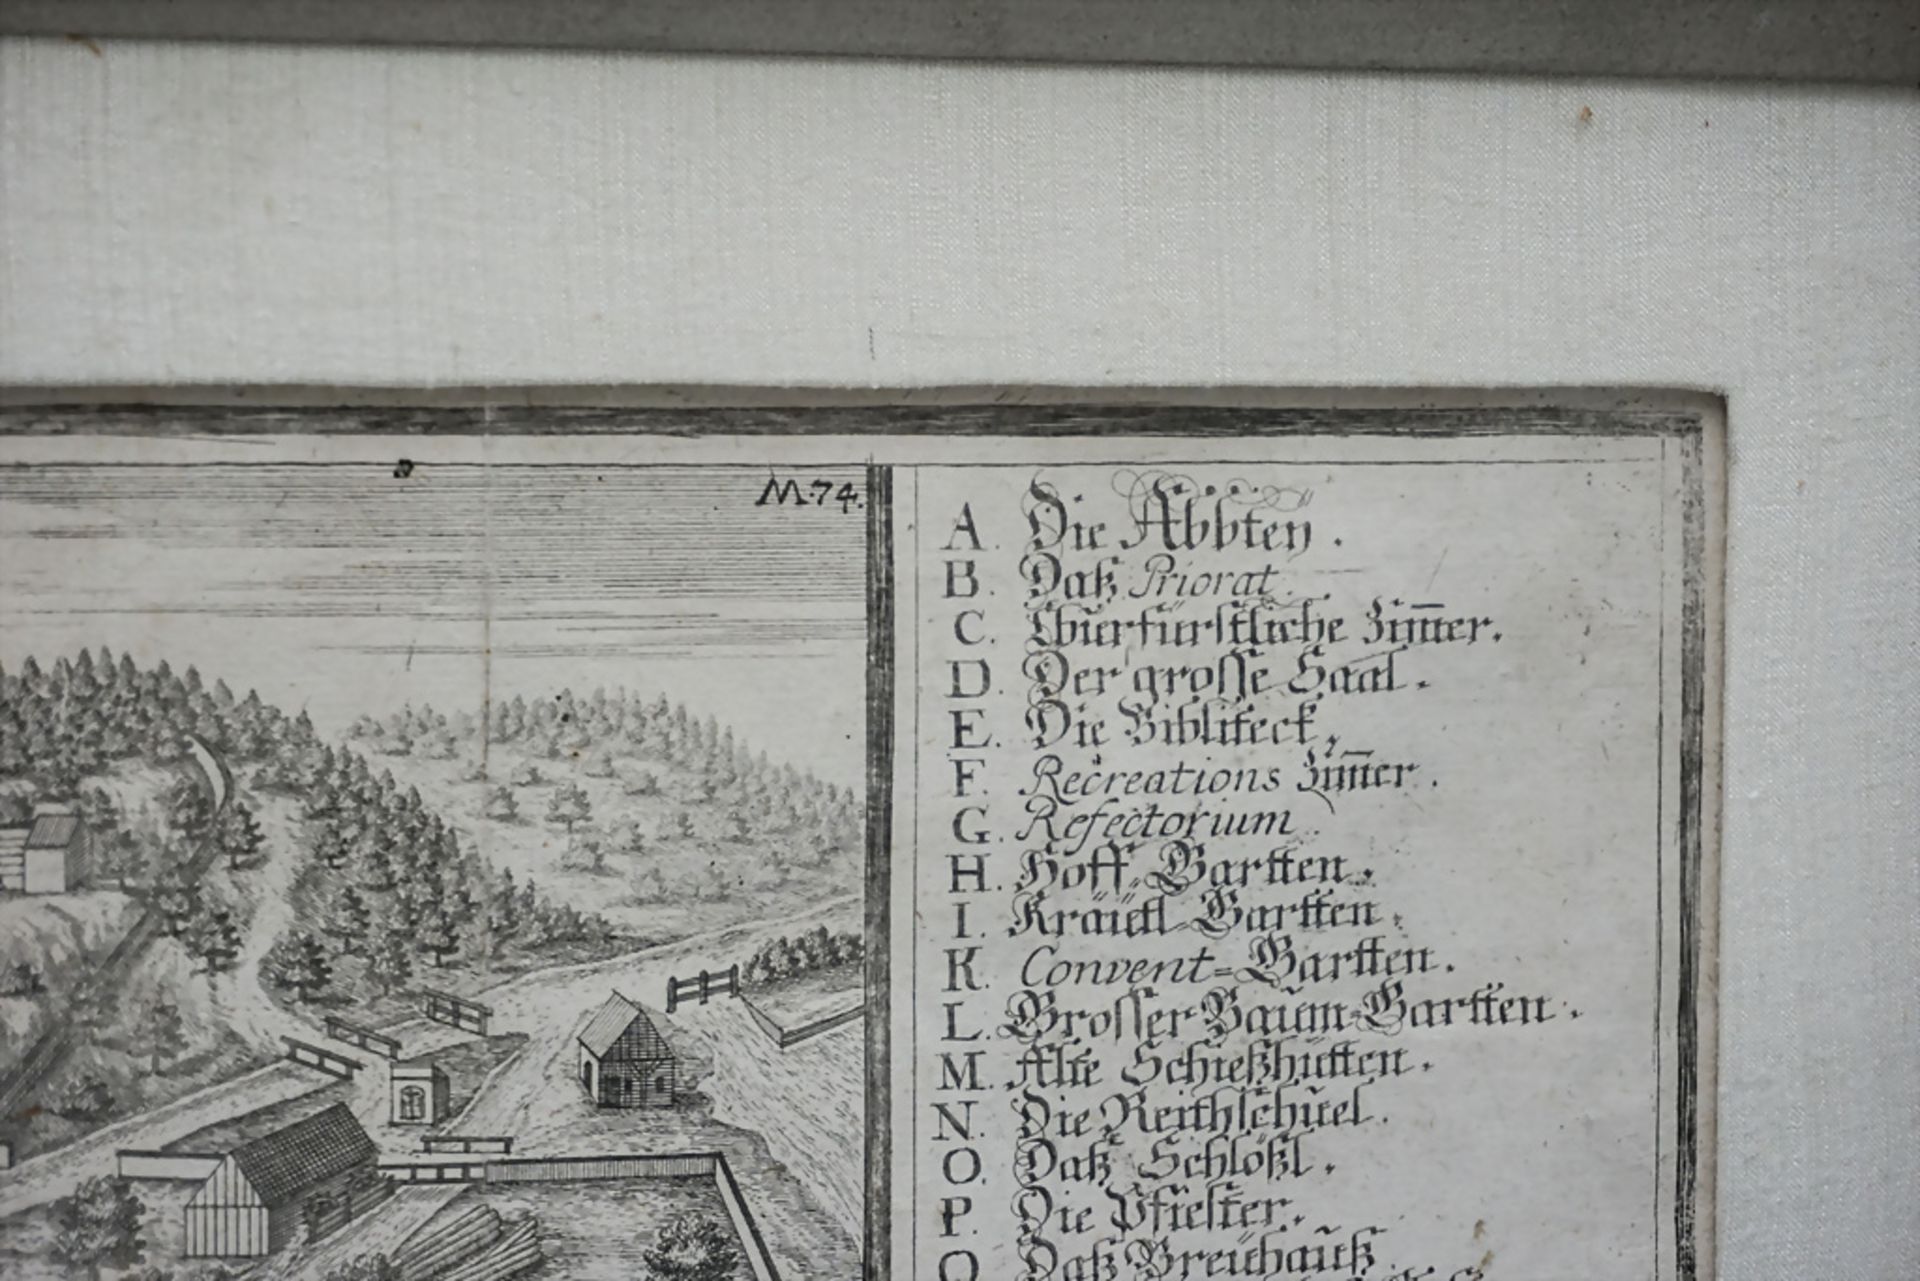 M.74.
A. Die Abbteÿ.
B. Daß Priorat.
C. Churfürstliche Zim̅er.
D. Der grosse Saal.
E. Die Bibliteck.
F. Recreations Zim̅er.
G. Refectorium.
H. Hoff-Gartten.
I. Kräütl Gartten.
K. Convent=Gartten.
L. Grosser Baum=Gartten.
M. Alte Schießhütten.
N. Die Reithschuel.
O. Daß Schlößl.
P. Die Pfiester.
Q. Daß Breuhauß